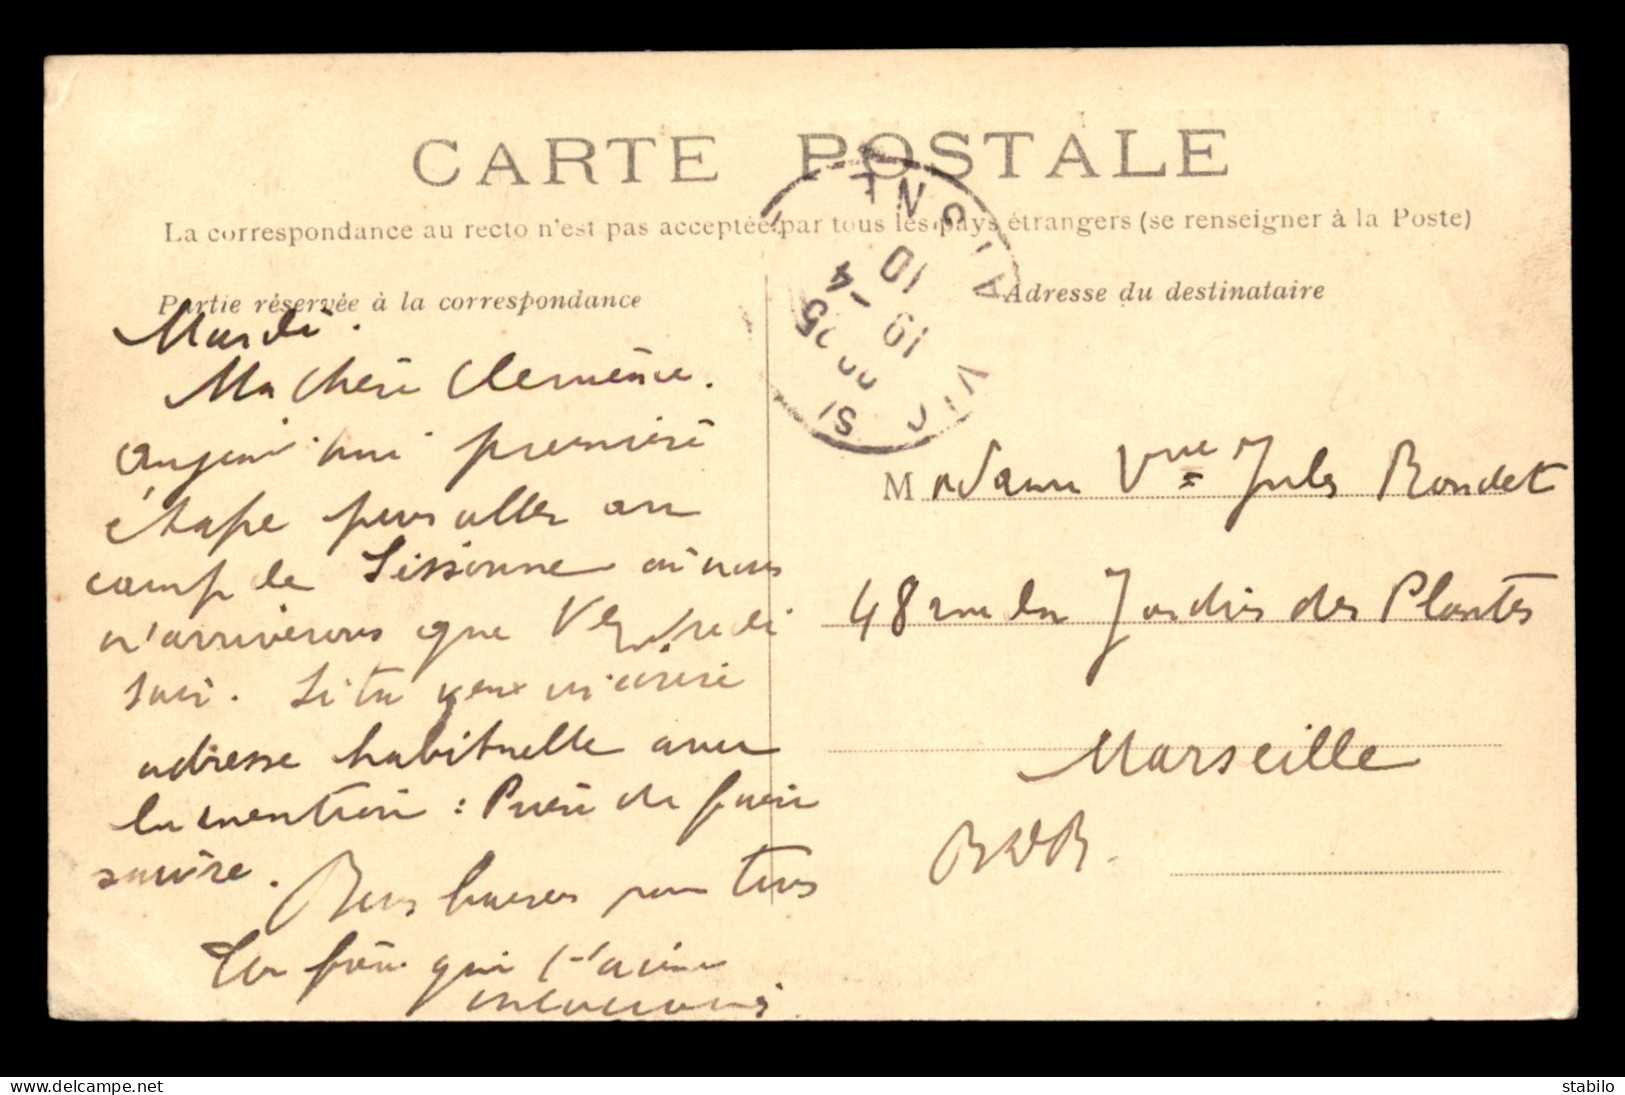 CARTE POSTALE
La correspondance au recto n'est pas acceptée par tous les pays étrangers (se renseigner à la Poste)
Partie réservée à la correspondance
Mardi.
Ma chère Clemence.
aujourd'hui première
étape pour aller au
camp de Sissonne où nous
n'arriverons que Vendredi
soir. Si tu veux m'écrire
adresse habituelle avec
la mention : Prière de faire
suivre.
Bons baisers pour tous
Ton frère qui t'aime
Adresse du destinataire
Madame Vve Jules Rondet
48 rue du Jardin des Plantes
Marseille
BDR.
10
19 -4
25
delcampe.net
stabilo